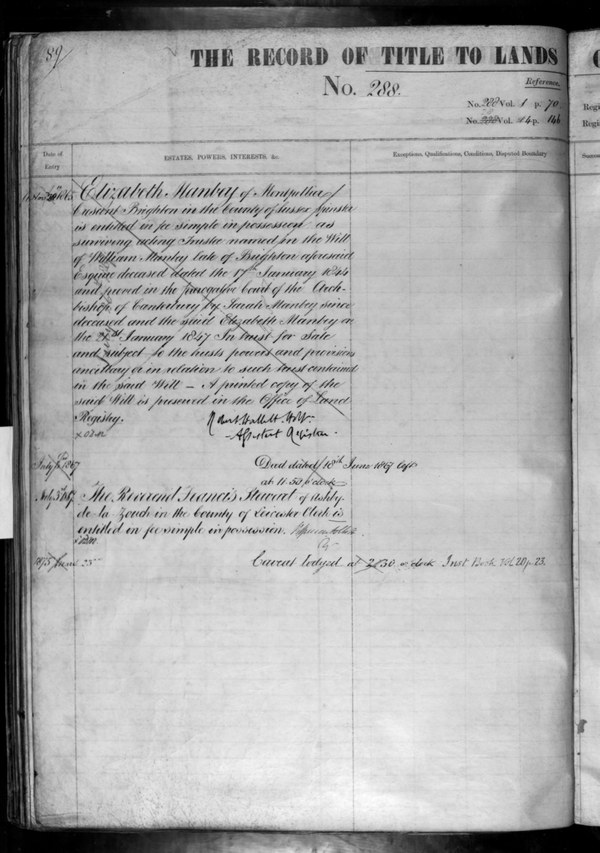 89
THE RECORD OF TITLE TO LANDS
No. 288.
Reference.
No. 288 Vol. 1 p. 70
No. 288 Vol. 14 p. 146
Date of Entry
ESTATES, POWERS, INTERESTS, &c.
Exceptions, Qualifications, Conditions, Disputed Boundary
1865 Elizabeth Manbey of Montpellier
Crescent Brighton in the County of Sussex Spinster
is entitled in fee simple in possession as
surviving acting Trustee named in the Will
of William Manbey late of Brighton aforesaid
Esquire deceased dated the 17th January 1844
and proved in the Prerogative Court of the Arch-
bishop of Canterbury by Sarah Manbey since
deceased and the said Elizabeth Manbey on
the 21st January 1847 In trust for Sale
and subject to the trusts powers and provisions
ancillary or in relation to such trust contained
in the said Will – A printed copy of the
said Will is preserved in the Office of Land
Registry.
Robert Hallett Holt.
– Assistant Registrar –
July 1867 Deed dated 18th June 1867 left
at 11.50 o'clock
July 1867 The Reverend Francis Stewart of Ashby-
de-la Zouch in the County of Leicester Clerk is
entitled in fee simple in possession.
1875 June 23rd Caveat lodged at 2.30 o'clock Inst Book Vol. 20 p. 23.
Regi
Regi